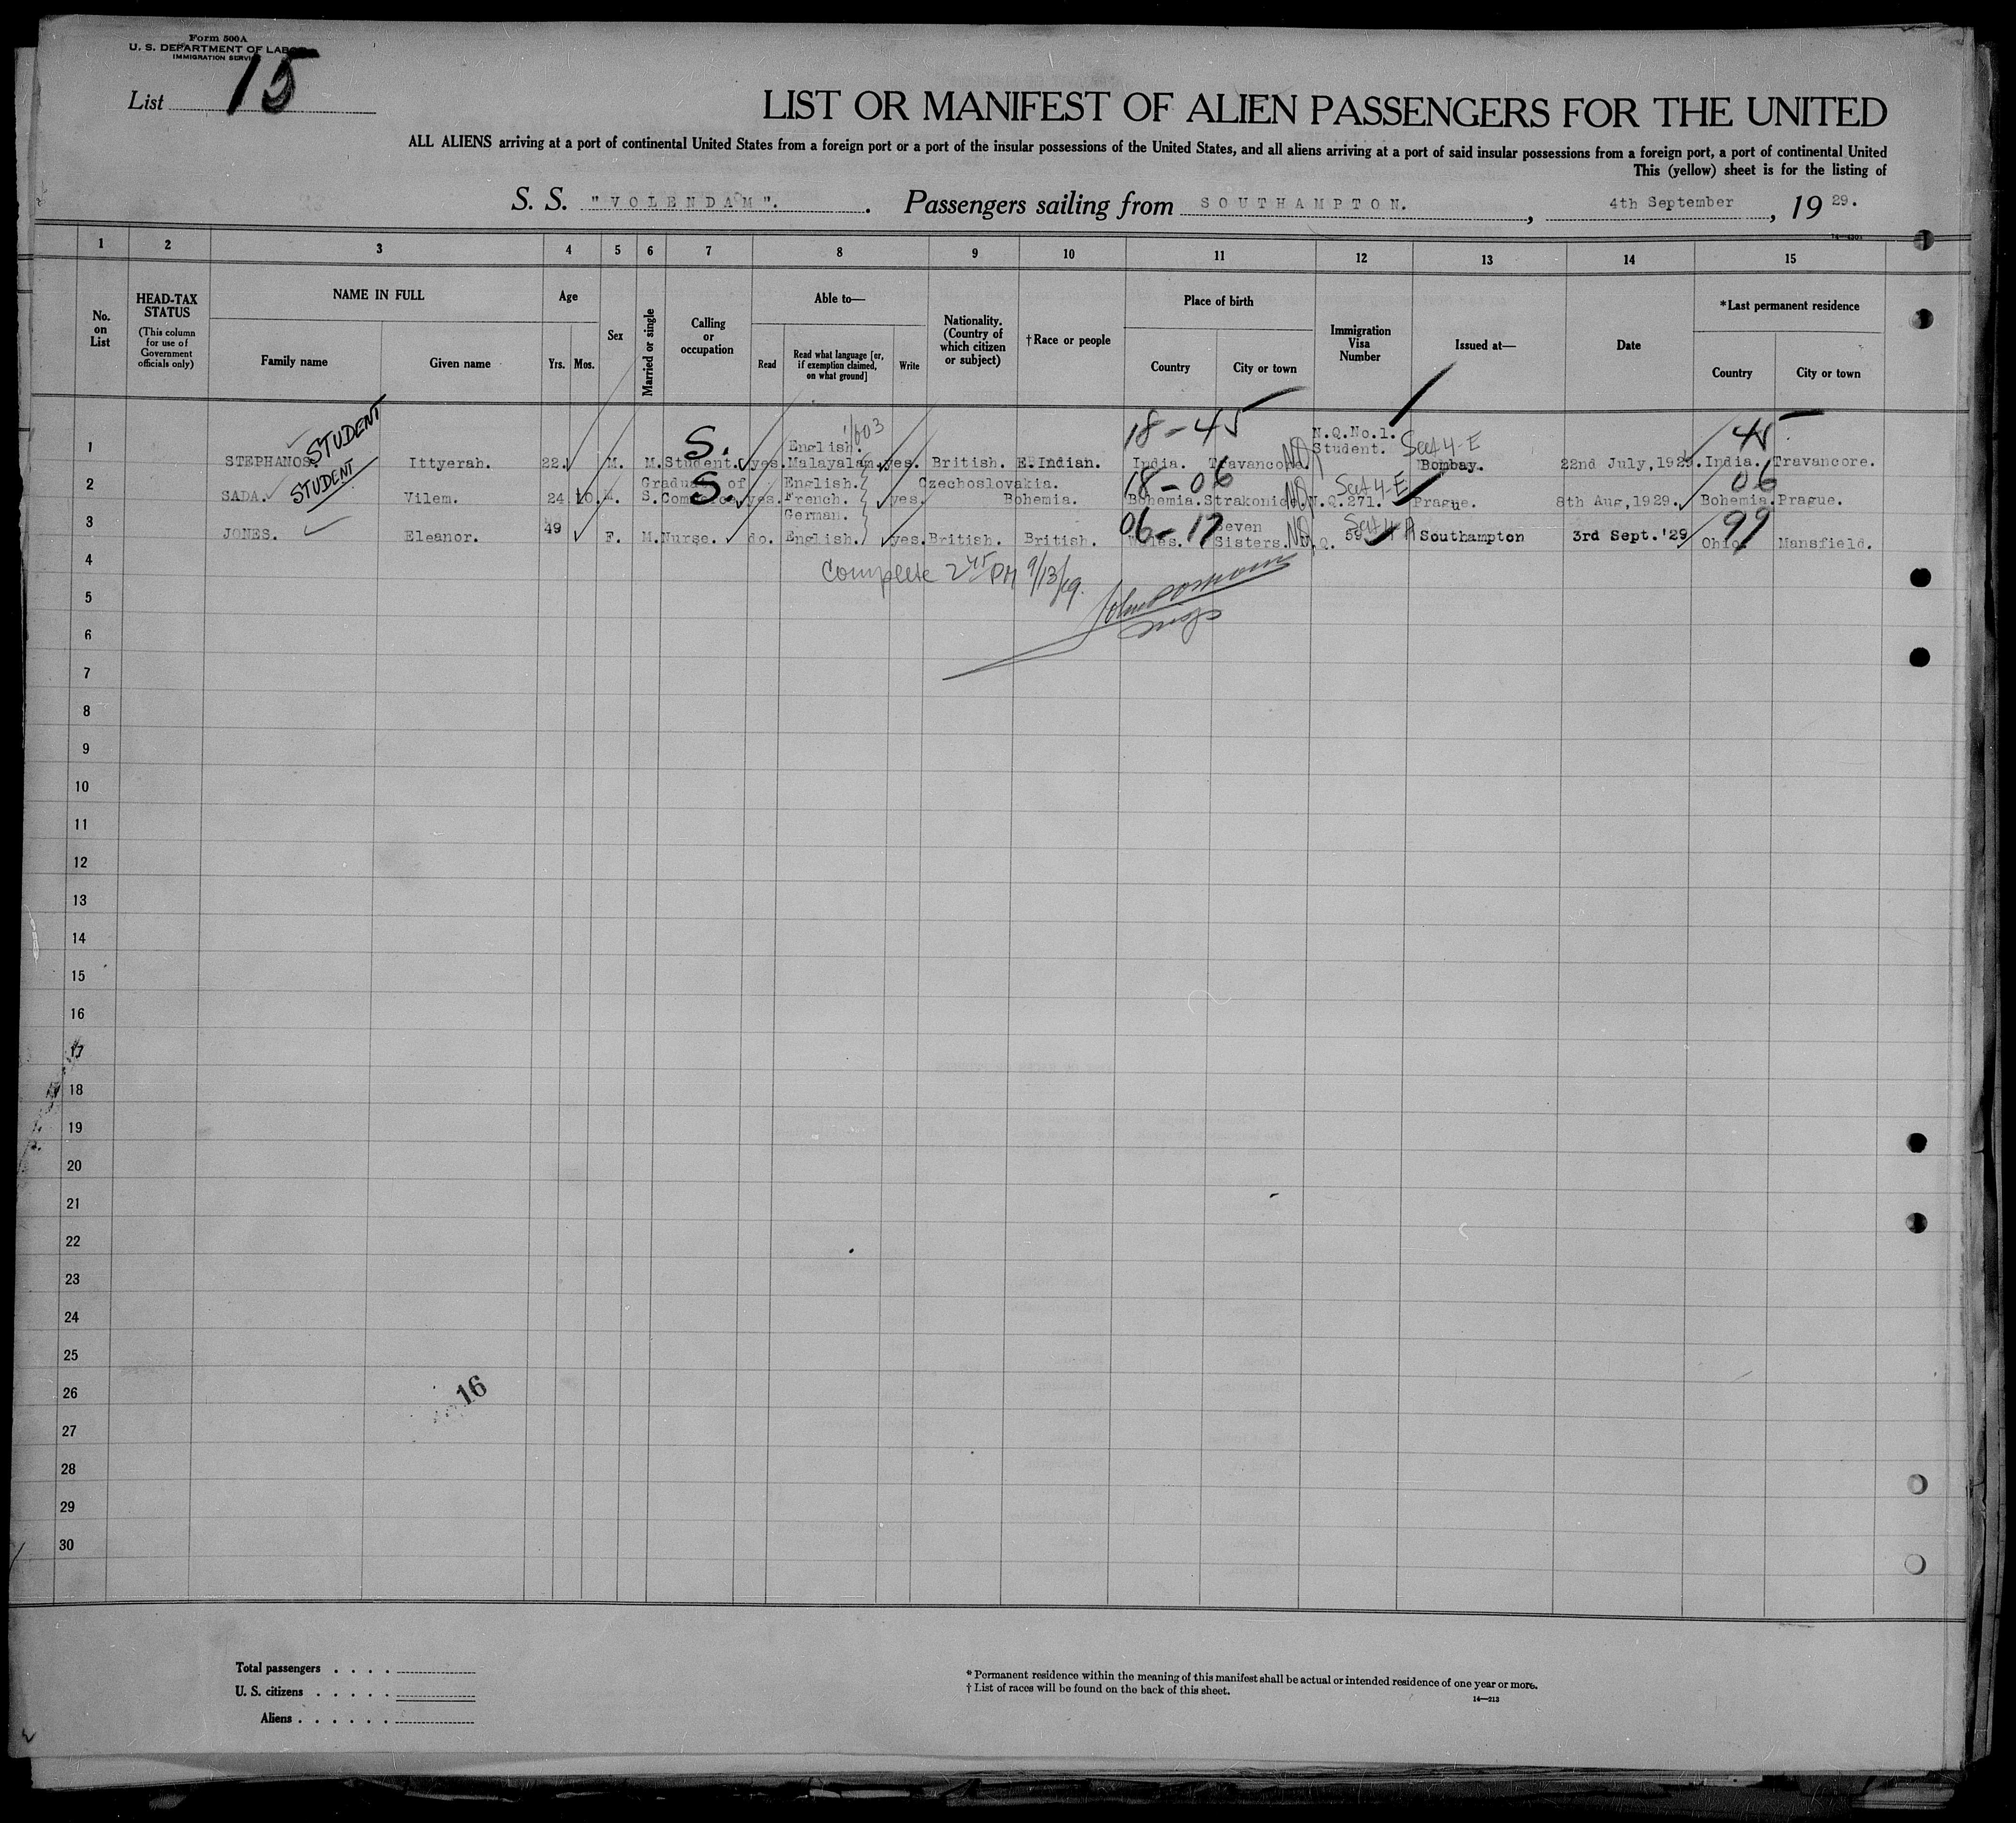 Form 500A
U. S. DEPARTMENT OF LABOR
IMMIGRATION SERVICE
List 15
LIST OR MANIFEST OF ALIEN PASSENGERS FOR THE UNITED
ALL ALIENS arriving at a port of continental United States from a foreign port or a port of the insular possessions of the United States, and all aliens arriving at a port of said insular possessions from a foreign port, a port of continental United
This (yellow) sheet is for the listing of
S. S. "VOLENDAM". Passengers sailing from SOUTHAMPTON. , 4th September , 19 29.
1 2 3 4 5 6 7 8 9 10 11 12 13 14 15
No. on List
HEAD-TAX STATUS
(This column for use of Government officials only)
NAME IN FULL
Family name
Given name
Age
Yrs. Mos.
Sex
Married or single
Calling or occupation
Able to—
Read
Read what language [or, if exemption claimed, on what ground]
Write
Nationality. (Country of which citizen or subject)
†Race or people
Place of birth
Country
City or town
Immigration Visa Number
Issued at—
Date
*Last permanent residence
Country
City or town
STUDENT S. 1/603 18-45 N.Q.No.1. 45
English. Student. Sect 4-E
1 STEPHANOS. Ittyerah. 22. M. M. Student. yes. Malayalam. yes. British. E. Indian. India. Travancore. NQ Bombay. 22nd July, 1929. India. Travancore.
STUDENT S. Graduate of English. Czechoslovakia. 18-06 Sect 4-E 06
2 SADA. Vilem. 24 10. M. S. Commerce yes. French. yes. Bohemia. Bohemia. Strakonice NQ N.Q.271. Prague. 8th Aug, 1929. Bohemia. Prague.
German. 06-17 Seven 99
3 JONES. Eleanor. 49 F. M. Nurse. do. English. yes. British. British. Wales. Sisters. NQ N.Q. 59 Southampton 3rd Sept. '29 Ohio. Mansfield.
4 Complete 2 45 PM 9/13/29.
5
6
7
8
9
10
11
12
13
14
15
16
17
18
19
20
21
22
23
24
25
26 16
27
28
29
30
Total passengers . . . .
U. S. citizens . . . . .
Aliens . . . . . .
* Permanent residence within the meaning of this manifest shall be actual or intended residence of one year or more.
† List of races will be found on the back of this sheet.
14—213